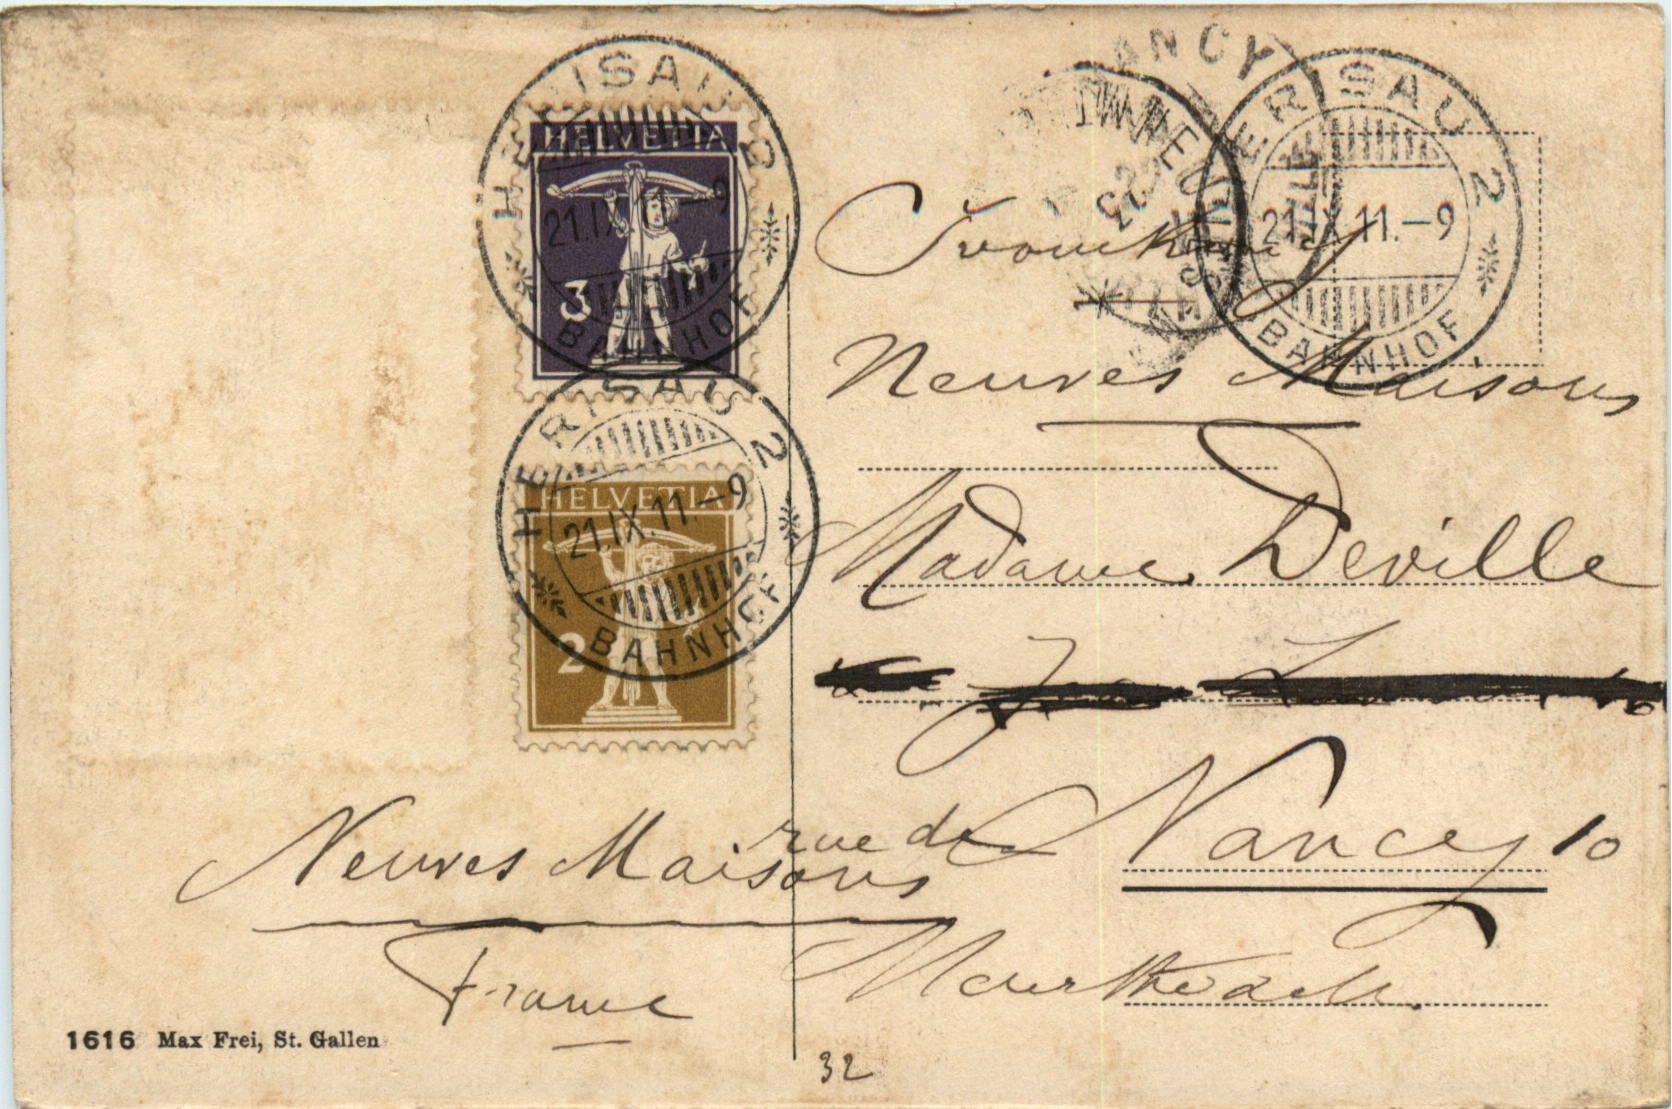 HERISAU 2
HELVETIA
21.IX.11.–9
3
BAHNHOF
HERISAU 2
HELVETIA
21.IX.11.–9
BAHNHOF
2
NANCY
HERISAU 2
21.IX.11.–9
BAHNHOF
Neuves Maisons
Madame Deville
rue de Nancy 10
Neuves Maisons
France
Meurthe
1616 Max Frei, St. Gallen
32